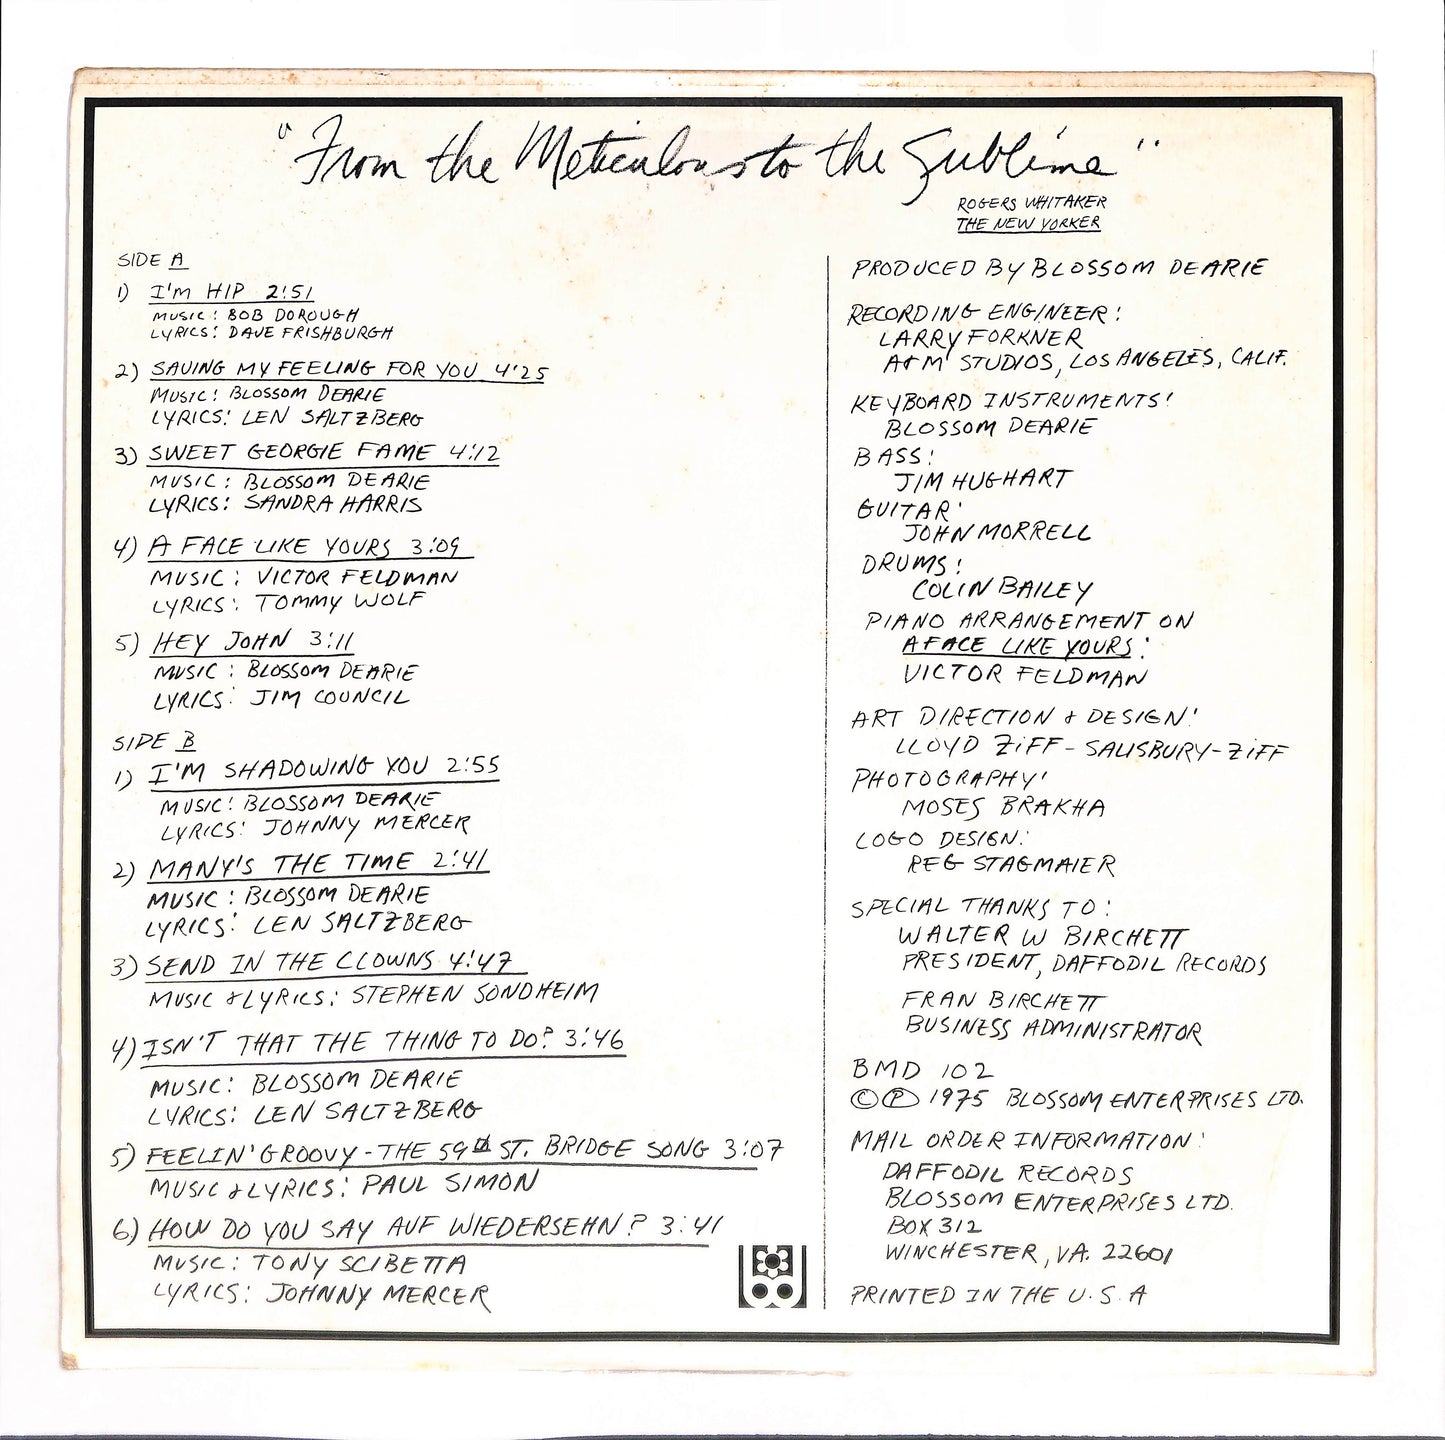 "From the Meticulous to the Sublime"
ROGERS WHITAKER
THE NEW YORKER
SIDE A
1) I'M HIP 2:51
MUSIC: BOB DOROUGH
LYRICS: DAVE FRISHBURGH
2) SAVING MY FEELING FOR YOU 4:25
MUSIC: BLOSSOM DEARIE
LYRICS: LEN SALTZBERG
3) SWEET GEORGIE FAME 4:12
MUSIC: BLOSSOM DEARIE
LYRICS: SANDRA HARRIS
4) A FACE LIKE YOURS 3:09
MUSIC: VICTOR FELDMAN
LYRICS: TOMMY WOLF
5) HEY JOHN 3:11
MUSIC: BLOSSOM DEARIE
LYRICS: JIM COUNCIL
SIDE B
1) I'M SHADOWING YOU 2:55
MUSIC: BLOSSOM DEARIE
LYRICS: JOHNNY MERCER
2) MANY'S THE TIME 2:41
MUSIC: BLOSSOM DEARIE
LYRICS: LEN SALTZBERG
3) SEND IN THE CLOWNS 4:47
MUSIC & LYRICS: STEPHEN SONDHEIM
4) ISN'T THAT THE THING TO DO? 3:46
MUSIC: BLOSSOM DEARIE
LYRICS: LEN SALTZBERG
5) FEELIN' GROOVY - THE 59th ST. BRIDGE SONG 3:07
MUSIC & LYRICS: PAUL SIMON
6) HOW DO YOU SAY AUF WIEDERSEHN? 3:41
MUSIC: TONY SCIBETTA
LYRICS: JOHNNY MERCER
PRODUCED BY BLOSSOM DEARIE
RECORDING ENGINEER:
LARRY FORKNER
A&M STUDIOS, LOS ANGELES, CALIF.
KEYBOARD INSTRUMENTS:
BLOSSOM DEARIE
BASS:
JIM HUGHART
GUITAR:
JOHN MORRELL
DRUMS:
COLIN BAILEY
PIANO ARRANGEMENT ON
A FACE LIKE YOURS:
VICTOR FELDMAN
ART DIRECTION & DESIGN:
LLOYD ZIFF - SALISBURY-ZIFF
PHOTOGRAPHY:
MOSES BRAKHA
LOGO DESIGN:
REG STAGMAIER
SPECIAL THANKS TO:
WALTER W BIRCHETT
PRESIDENT, DAFFODIL RECORDS
FRAN BIRCHETT
BUSINESS ADMINISTRATOR
BMD 102
© ℗ 1975 BLOSSOM ENTERPRISES LTD.
MAIL ORDER INFORMATION:
DAFFODIL RECORDS
BLOSSOM ENTERPRISES LTD.
BOX 312
WINCHESTER, VA. 22601
PRINTED IN THE U.S.A